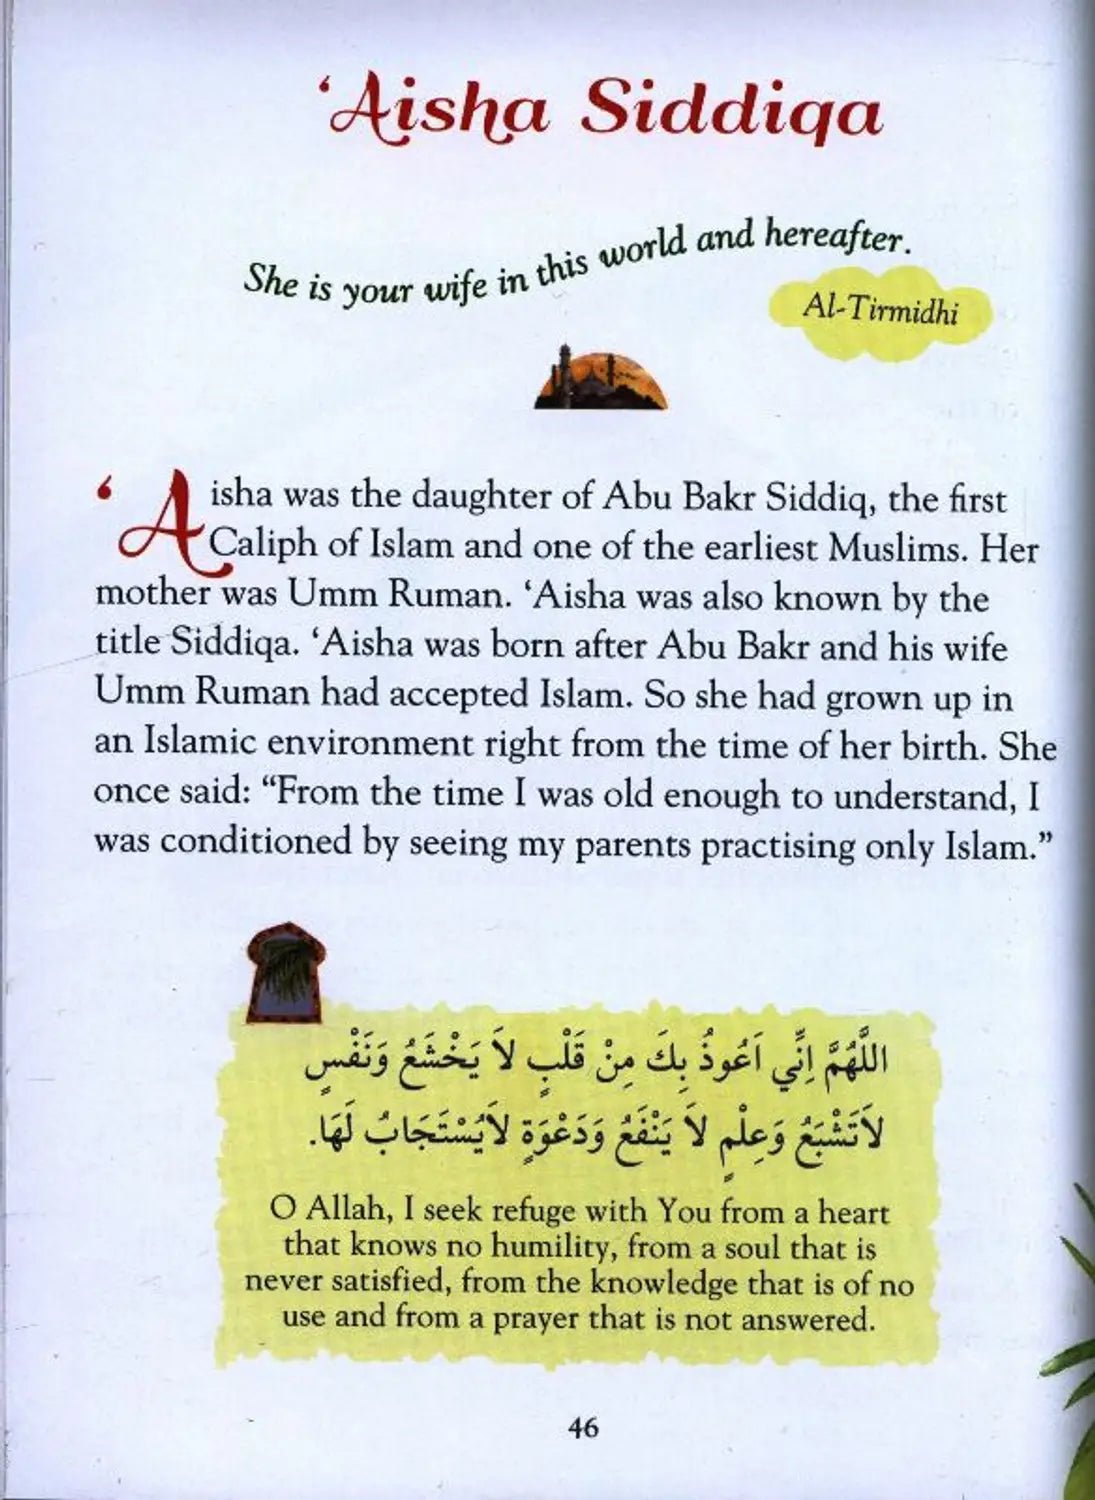 ‘Aisha Siddiqa
She is your wife in this world and hereafter.
Al-Tirmidhi
‘Aisha was the daughter of Abu Bakr Siddiq, the first
Caliph of Islam and one of the earliest Muslims. Her
mother was Umm Ruman. ‘Aisha was also known by the
title Siddiqa. ‘Aisha was born after Abu Bakr and his wife
Umm Ruman had accepted Islam. So she had grown up in
an Islamic environment right from the time of her birth. She
once said: “From the time I was old enough to understand, I
was conditioned by seeing my parents practising only Islam.”
اللَّهُمَّ اِنِّي اَعُوذُ بِكَ مِنْ قَلْبٍ لاَ يَخْشَعُ وَنَفْسٍ
لاَتَشْبَعُ وَعِلْمٍ لاَ يَنْفَعُ وَدَعْوَةٍ لاَيُسْتَجَابُ لَهَا.
O Allah, I seek refuge with You from a heart
that knows no humility, from a soul that is
never satisfied, from the knowledge that is of no
use and from a prayer that is not answered.
46